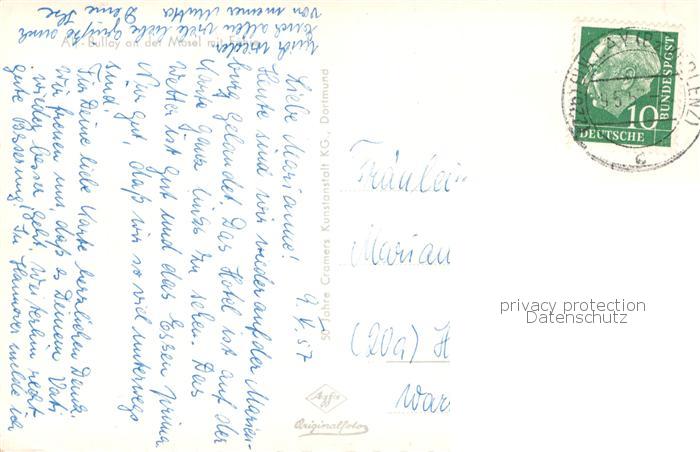 Alf-Bullay an der Mosel mit
9. V. 57
Liebe Marianne!
Heute sind wir wieder auf der Marien-
burg gelandet. Das Hotel ist auf der
Karte ganz links zu sehen. Das
Wetter ist gut und das Essen prima.
Nur gut, daß wir so viel unterwegs
sind!
Für Deine liebe Karte herzlichen Dank.
Wir freuen uns, daß es Deinem Vati
wieder besser geht. Weiterhin recht
gute Besserung! In Hannover melde ich
mich wieder.
Euch allen viele liebe Grüße auch
von meiner Mutti Deine
50 Jahre Cramers Kunstanstalt KG., Dortmund
Agfa
Originalfoto
Fräulein
Marian
(20a) H
War
10
DEUTSCHE
BUNDESPOST
privacy protection
Datenschutz